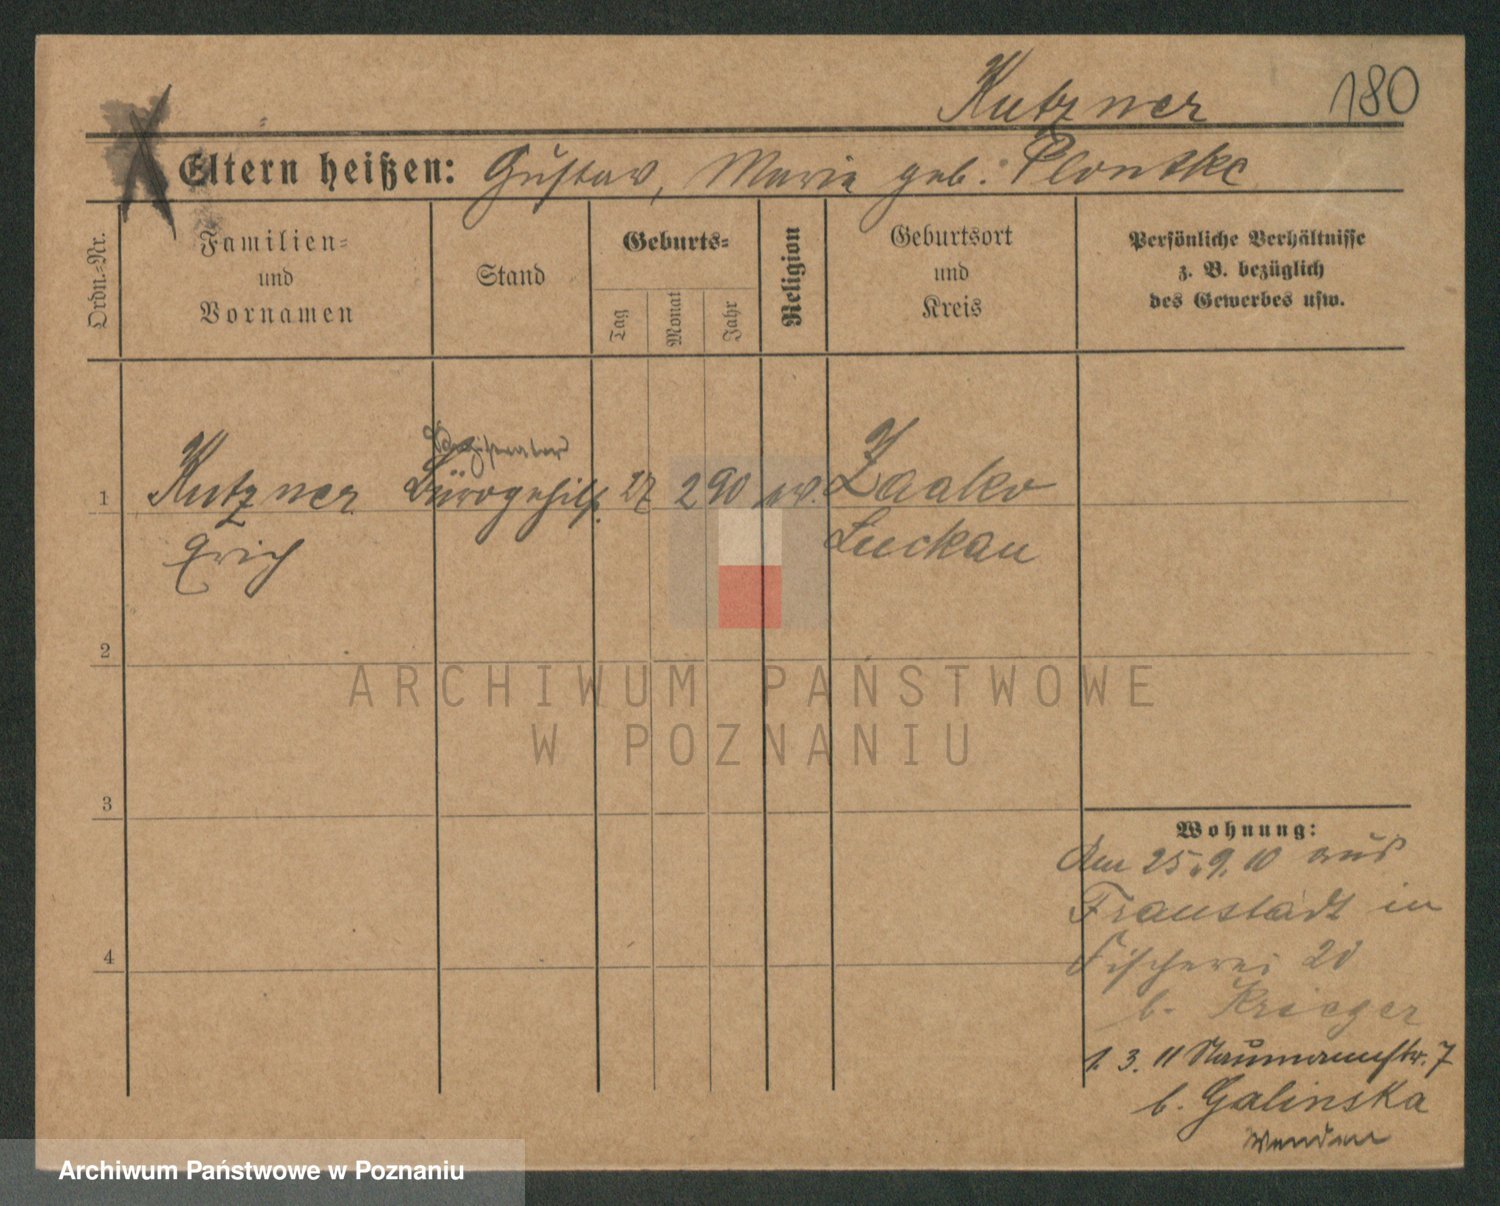 Kutzner 180
Eltern heißen: Gustav, Marie geb. Plontke
Ordn.=Nr.
Familien=
und
Vornamen
Stand
Geburts=
Tag
Monat
Jahr
Religion
Geburtsort
und
Kreis
Persönliche Verhältnisse
z. B. bezüglich
des Gewerbes usw.
Registrator
1 Kutzner Bürogehilf. 27 2 90 ev. Zaako
Erich Luckau
2
3
4
ARCHIWUM PAŃSTWOWE
W POZNANIU
Wohnung:
Am 25.9.10 aus
Fraustadt in
Fischerei 20
b. Krieger
1. 3. 11 Naumannstr. 7
b. Galinska
Wenden
Archiwum Państwowe w Poznaniu